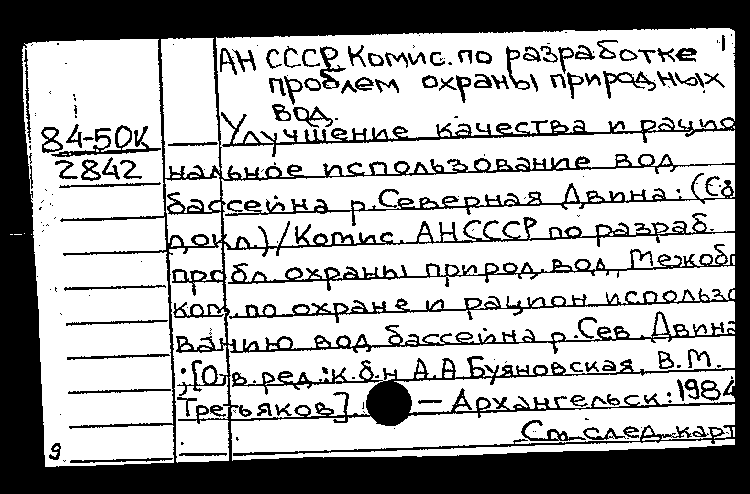 АН СССР. Комис. по разработке 1
проблем охраны природных
вод.
84-50К
2842
Улучшение качества и рацио
нальное использование вод
бассейна р. Северная Двина: (Сб
докл.) / Комис. АН СССР по разраб.
пробл. охраны природ. вод, Межобл
ком. по охране и рацион использо
ванию вод бассейна р. Сев. Двина
; [Отв. ред.: к.б.н А.А Буяновская, В.М.
Третьяков]. — Архангельск: 1984
См след. карт
9